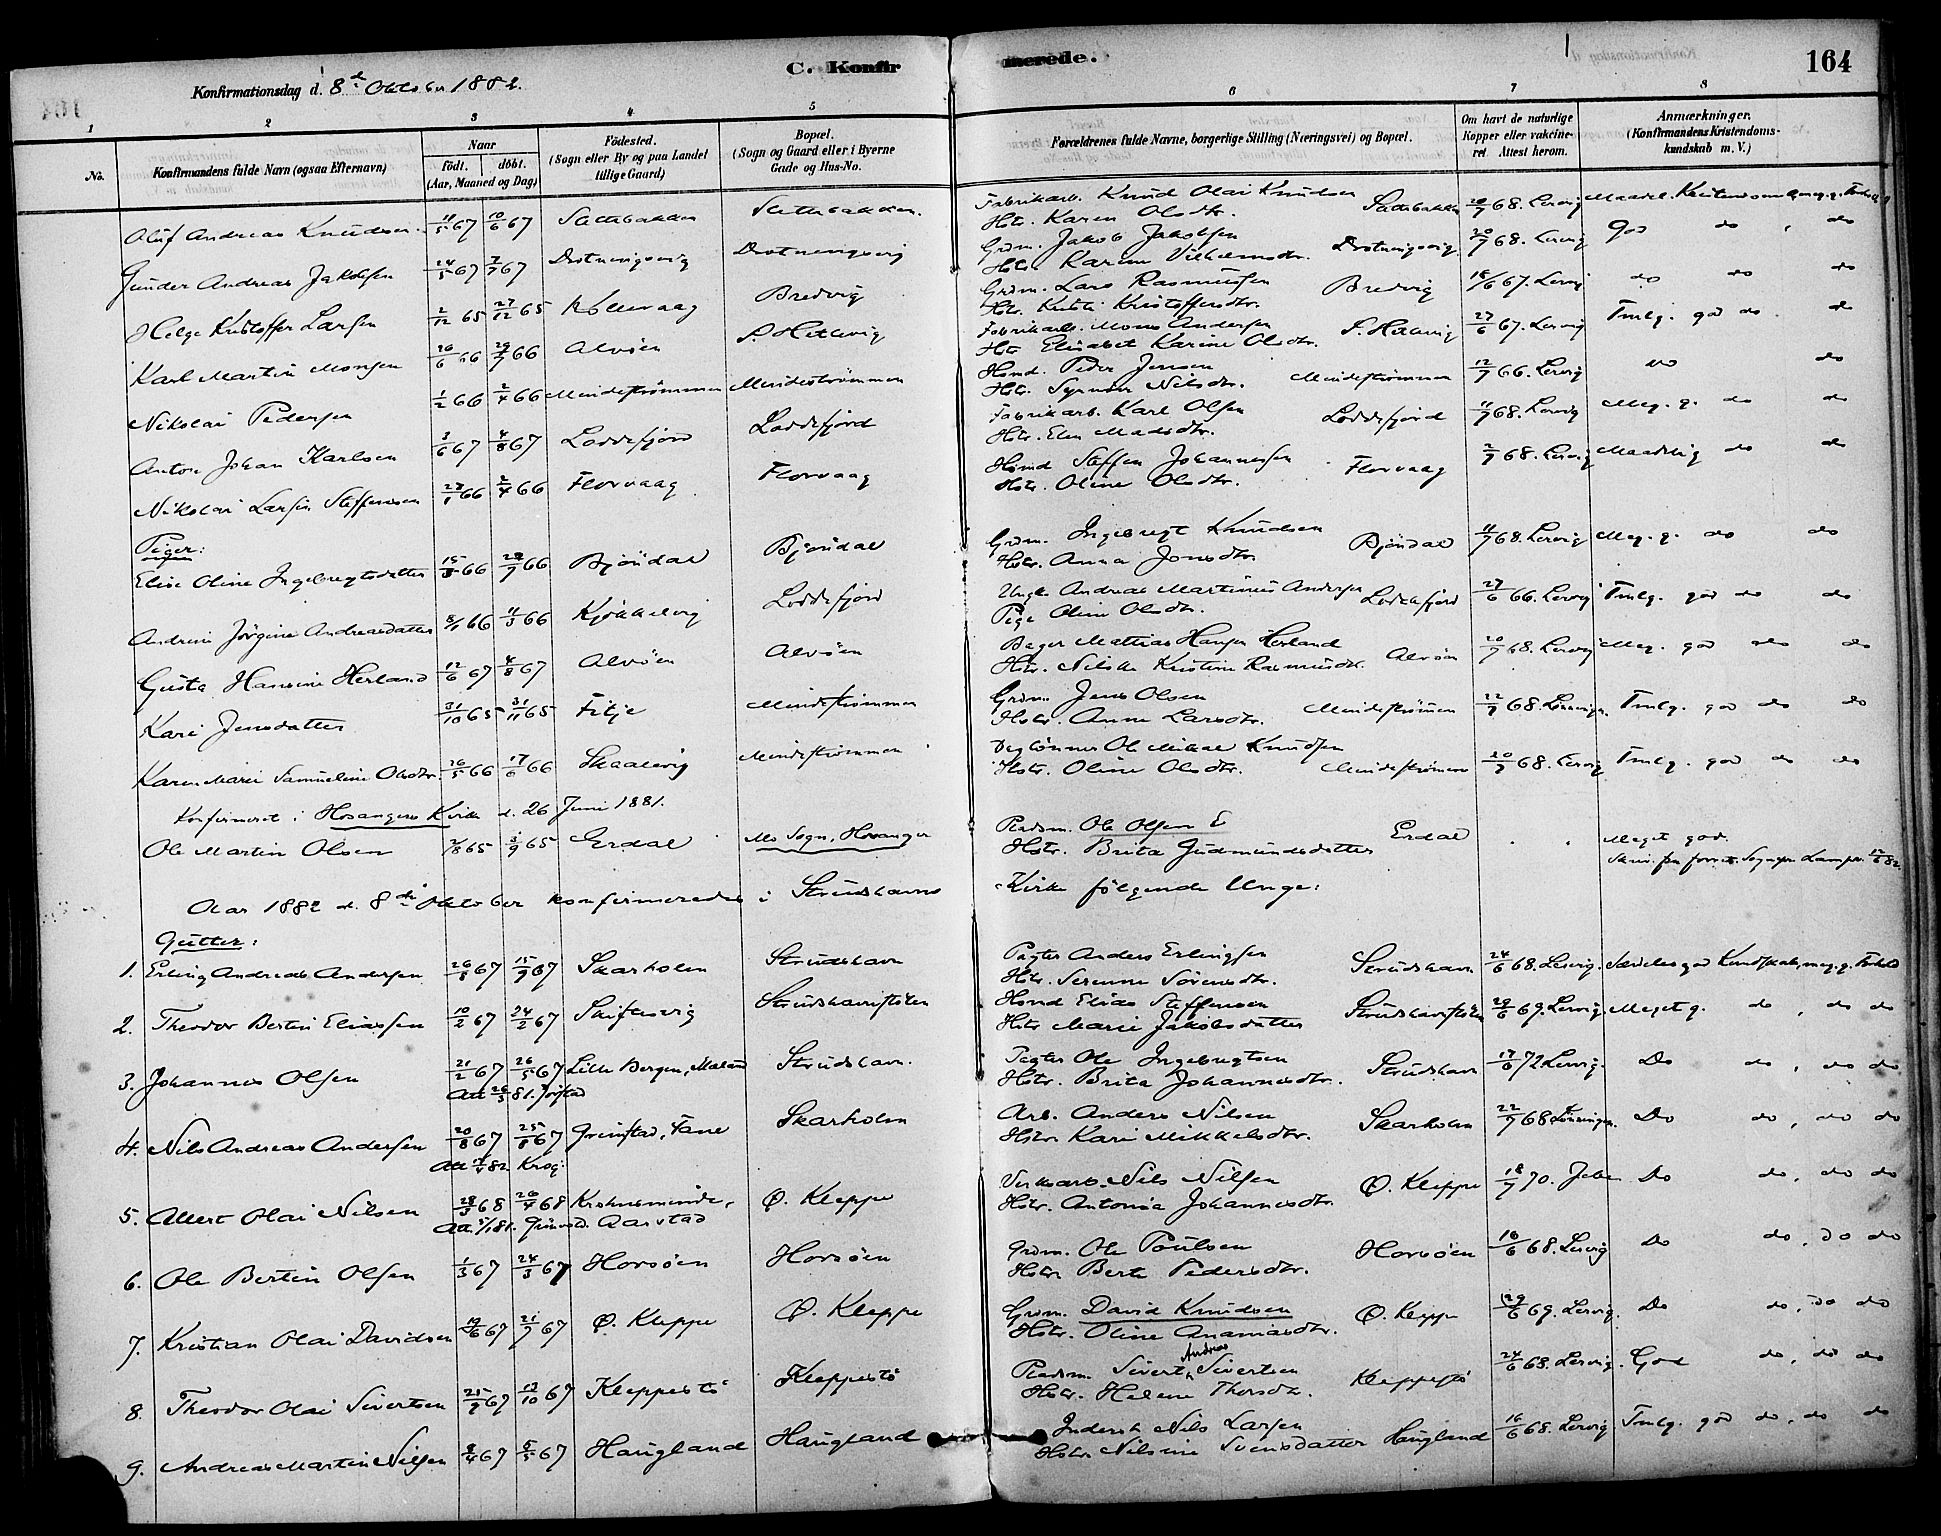 C. Konfirmerede.
164
Konfirmationsdag d. 8de Oktober 1882.
1 2 3 4 5 6 7 8
No.
Konfirmandens fulde Navn (ogsaa Efternavn)
Naar
födt. döbt.
(Aar, Maaned og Dag)
Födested.
(Sogn eller By og paa Landet
tillige Gaard)
Bopæl.
(Sogn og Gaard eller i Byerne
Gade og Hus-No.
Forældrenes fulde Navne, borgerlige Stilling (Næringsvei) og Bopæl.
Om havt de naturlige
Kopper eller vakcine-
ret. Attest herom.
Anmærkninger.
(Konfirmandens Kristendoms-
kundskab m. V.)
Oluf Andreas Knudsen 11/5 67 10/6 67 Slettebakken Slettebakken. Fabrikarb. Knud Olai Knudsen Slettebakken 20/7 68. Lervig
Hstr. Karen Olsdtr.
Gunder Andreas Jakobsen 24/5 67 7/7 67 Drotningsvig Drotningsvig Grdm. Jakob Jakobsen Drotningsvig 20/7 68. Lervig God do, do
Hstr. Karen Vilhelmsdtr.
Helge Kristoffer Larsen 2/12 65 27/12 65 Kollevaag Bredvig Grdm. Lars Rasmussen Bredvig 18/6 67. Lervig do do do
Hstr. Kristi Kristoffersdtr.
Karl Martin Monsen 26/6 66 29/7 66 Alvöen S. Hetlevig Fabrikarb. Mons Andersen S. Hetlevig 27/6 67. Lervig Tmlg. god do. do
Hstr. Elisabet Karine Olsdtr.
Nikolai Pedersen 1/2 66 2/4 66 Mindeströmmen Mindeströmmen Hsmd. Peder Jensen Mindeströmmen 12/7 66. Lervig do do
Hstr. Synnöve Nilsdtr.
Anton Johan Karlsen 3/6 67 4/8 67 Loddefjord Loddefjord Fabrikarb. Karl Olsen Loddefjord 11/7 68. Lervig Meg. g. do do
Hstr. Elen Madsdtr.
Nikolai Larsin Steffensen 27/1 66 2/4 66 Florvaag Florvaag Hsmd Steffen Johannesen Florvaag 2/7 68. Lervig Maadelig do do
Hstr. Oline Olsdtr.
Piger:
Elise Oline Ingebrigtsdatter 15/3 66 29/7 66 Bjöndal Bjöndal Grdm. Ingebrigt Knudsen Bjöndal 11/7 68. Lervig Meg. g. do do
Hstr. Anna Jonsdtr.
Andrine Jörgine Andreasdatter 8/1 66 11/3 66 Kjökkelvig Loddefjord Ungk. Andreas Martinus Andersen Loddefjord 27/6 66. Lervig Tmlg. god do do
Pige Oline Olsdtr.
Gusta Hansine Herland 12/6 67 4/8 67 Alvöen Alvöen Bager Mathias Hansen Herland Alvöen 20/7 68. Lervig Meg. god do do
Hstr. Nilske Kristine Rasmusdtr.
Kari Jensdatter 31/10 65 31/11 65 Filje Mindeströmmen Grdm. Jens Olsen Mindeströmmen 22/7 68. Lönningen. Tmlg. god do do
Hstr. Anne Larsdtr.
Karen Marie Samueline Olsdtr. 26/5 66 17/6 66 Skaalevig Mindeströmmen Daglönner Ole Mikal Knudsen Mindeströmmen 20/7 68. Lervig Tmlg. god do do
Hstr. Oline Olsdtr.
Konfirmeret i Hosangers Kirke d. 26 Juni 1881.
Ole Martin Olsen 7/8 65 3/9 65 Erdal Mo Sogn, Hosanger Pladsm. Ole Olsen E Erdal Meget god.
Hstr. Brita Gudmundsdatter
Aar 1882 d. 8de Oktober konfirmeredes i Strudshavns Kirke fölgende Unge:
Gutter:
1. Erling Andreas Andersen 26/8 67 15/9 67 Skarholm Strudshavn Pagter Anders Erlingsen Strudshavn 24/6 68. Lervig. Særdeles god Kundskab, meg. g. Forhold
Hstr. Serenne Sörensdtr.
2. Theodor Bertin Eliassen 10/2 67 24/2 67 Skiftesvig Strudshavnstölen Hsmd Elias Steffensen Strudshavnstölen 29/6 69. Lervig. Meget g. do, do do
Hstr Marie Jakobsdatter
3. Johannes Olsen 21/2 67 26/5 67 Lille Bergen, Mæland Strudshavn. Pagter Ole Ingebrigtsen Strudshavn 17/6 72 Lervig. Do do, do do
Att 26/3 81. Jörstad Hstr. Brita Johannesdtr.
4. Nils Andreas Andersen 20/8 67 25/8 67 Grimstad, Fane Skarholm Arb. Anders Nilsen Skarholm 22/7 68 Lönningen. Do do, do do
Krog. Hstr. Kari Mikkelsdtr.
5. Albert Olai Nilsen 28/3 68 26/4 68 Kristiansminde, Ö. Kleppe Verksarb. Nils Nilsen Ö. Kleppe 18/7 70. Do do, do do
Aarstad Hstr. Antonia Johannesdtr.
6. Ole Bertin Olsen 1/3 67 24/3 67 Horsöen Horsöen Grdm. Ole Poulsen Horsöen 16/6 68. Lervig Do do, do do
Hstr. Berte Pedersdtr.
7. Kristian Olai Davidsen 19/6 67 21/7 67 Ö. Kleppe Ö. Kleppe Grdm. David Knudsen Ö. Kleppe 29/6 69. Lervig. Do do, do do
Hstr. Oline Ananiasdtr.
8. Theodor Olai Sivertsen 25/9 67 13/10 67 Kleppestö Kleppestö Pladsm. Sivert Andreas Sivertsen Kleppestö 24/6 68. Lervig. God do, do do
Hstr. Helene Thorsdtr.
9. Andreas Martin Nilsen 8/4 67 5/5 67 Haugland Haugland Inderst Nils Larsen Haugland 16/6 68. Lervig Tmlg. god do, do do
Hstr. Nilsine Svensdatter